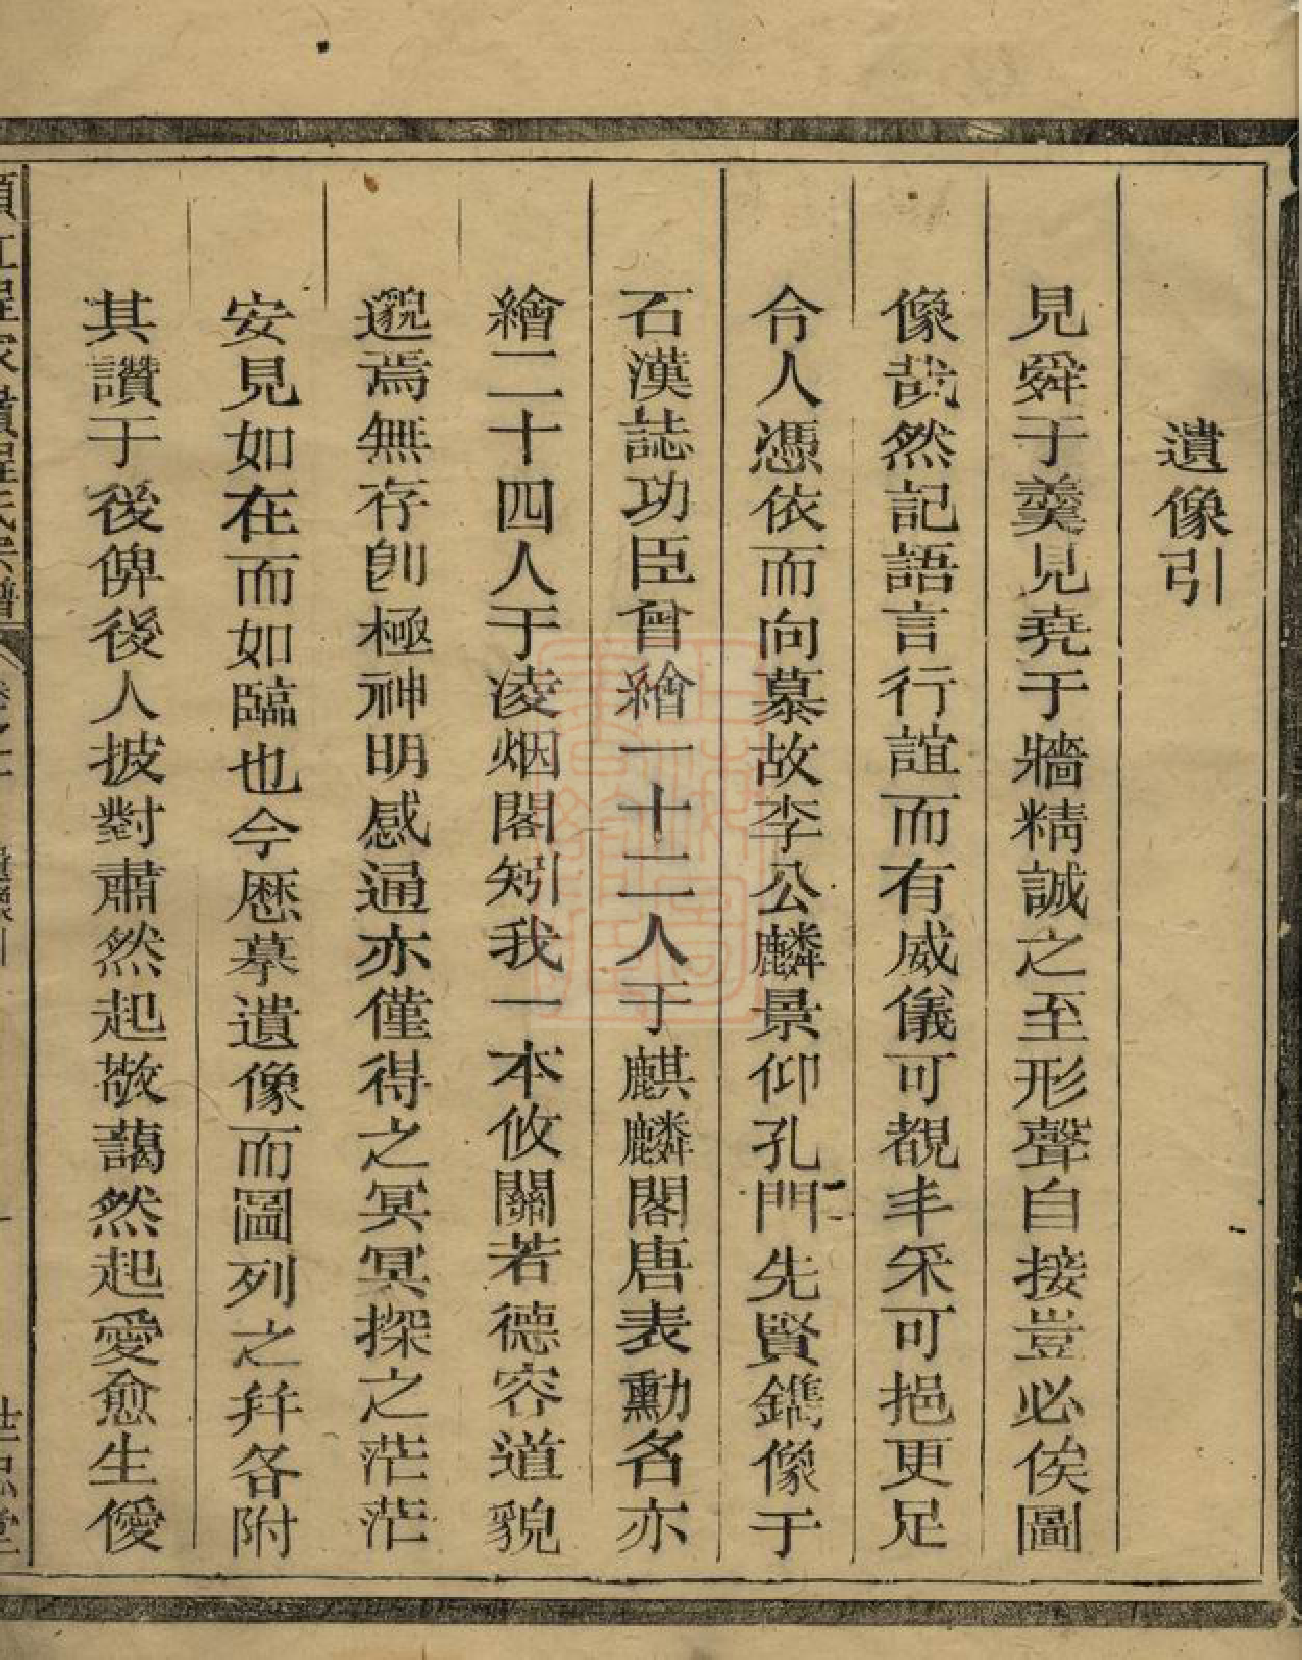 遺像引
見舜于羹見堯于牆精誠之至形聲自接豈必俟圖
像哉然記語言行誼而有威儀可覩丰采可挹更足
令人憑依而向慕故李公麟景仰孔門先賢鐫像于
石漢誌功臣曾繪一十二人于麒麟閣唐表勳名亦
繪二十四人于凌烟閣矧我一本攸關若德容道貌
邈焉無存卽極神明感通亦僅得之冥冥探之茫茫
安見如在而如臨也今歷摹遺像而圖列之幷各附
其讚于後俾後人披對肅然起敬藹然起愛愈生僾
程家墳程氏宗譜
遺像引
世忠堂